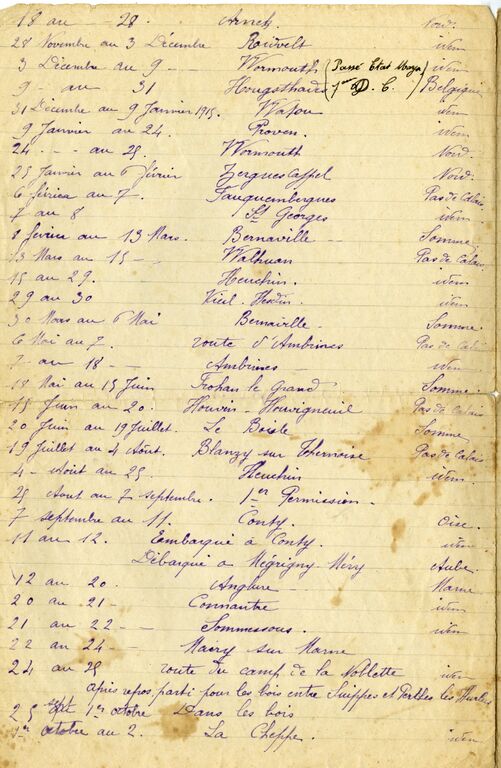 18 au - 28. Arnek. Nord.
28 Novembre au 3 Décembre Rouvelt idem
3 Décembre au 9 - Wormouth (Passé Etat Major idem
9 - au 31 Hougsthaide 1ère D. C.) Belgique
31 Décembre au 9 Janvier 1915. Watou idem
9 Janvier au 24. Proven. idem
24. - - au 25 Wormouth Nord.
25 Janvier au 6 février Zerguescappel Nord.
6 février au 7. Fauquembergues Pas de Calais.
7 au 8 St Georges idem
8 février au 13 Mars. Bernaville - Somme
13 Mars au 15 - Wathuan Pas de Calais
15 au 29. Heuchin. idem
29 au 30 Vieil-Hesdin. idem
30 Mars au 6 Mai Bernaville. Somme
6 Mai au 7. route d'Ambrines Pas de Calais
7 - au 18 - Ambrines - idem
18 Mai au 15 Juin Frohan le Grand Somme.
15 Juin au 20. Houvin-Houvigneuil Pas de Calais
20 Juin au 19 Juillet. Le Boisle Somme
19 Juillet au 4 Août. Blanzy sur Thernoise Pas de Calais
4 - Août au 25. Heuchin idem.
25 Aout au 7 septembre. 1er Permission.
7 septembre au 11. Conty. Oise.
11 au 12. Embarqué à Conty. idem
Débarqué à Mégrigny-Méry Aube.
12 au 20. Anglure - Marne
20 au 21 - Connantre idem
21 au 22 - - Sommesous. idem
22 au 24 - Mairy sur Marne
24 au 25 route du camp de la Noblette idem
après repos, parti pour les bois entre Suippes et Perthes les Hurlus
25 sept 1er octobre Dans les bois
1er octobre au 2. La Cheppe. idem